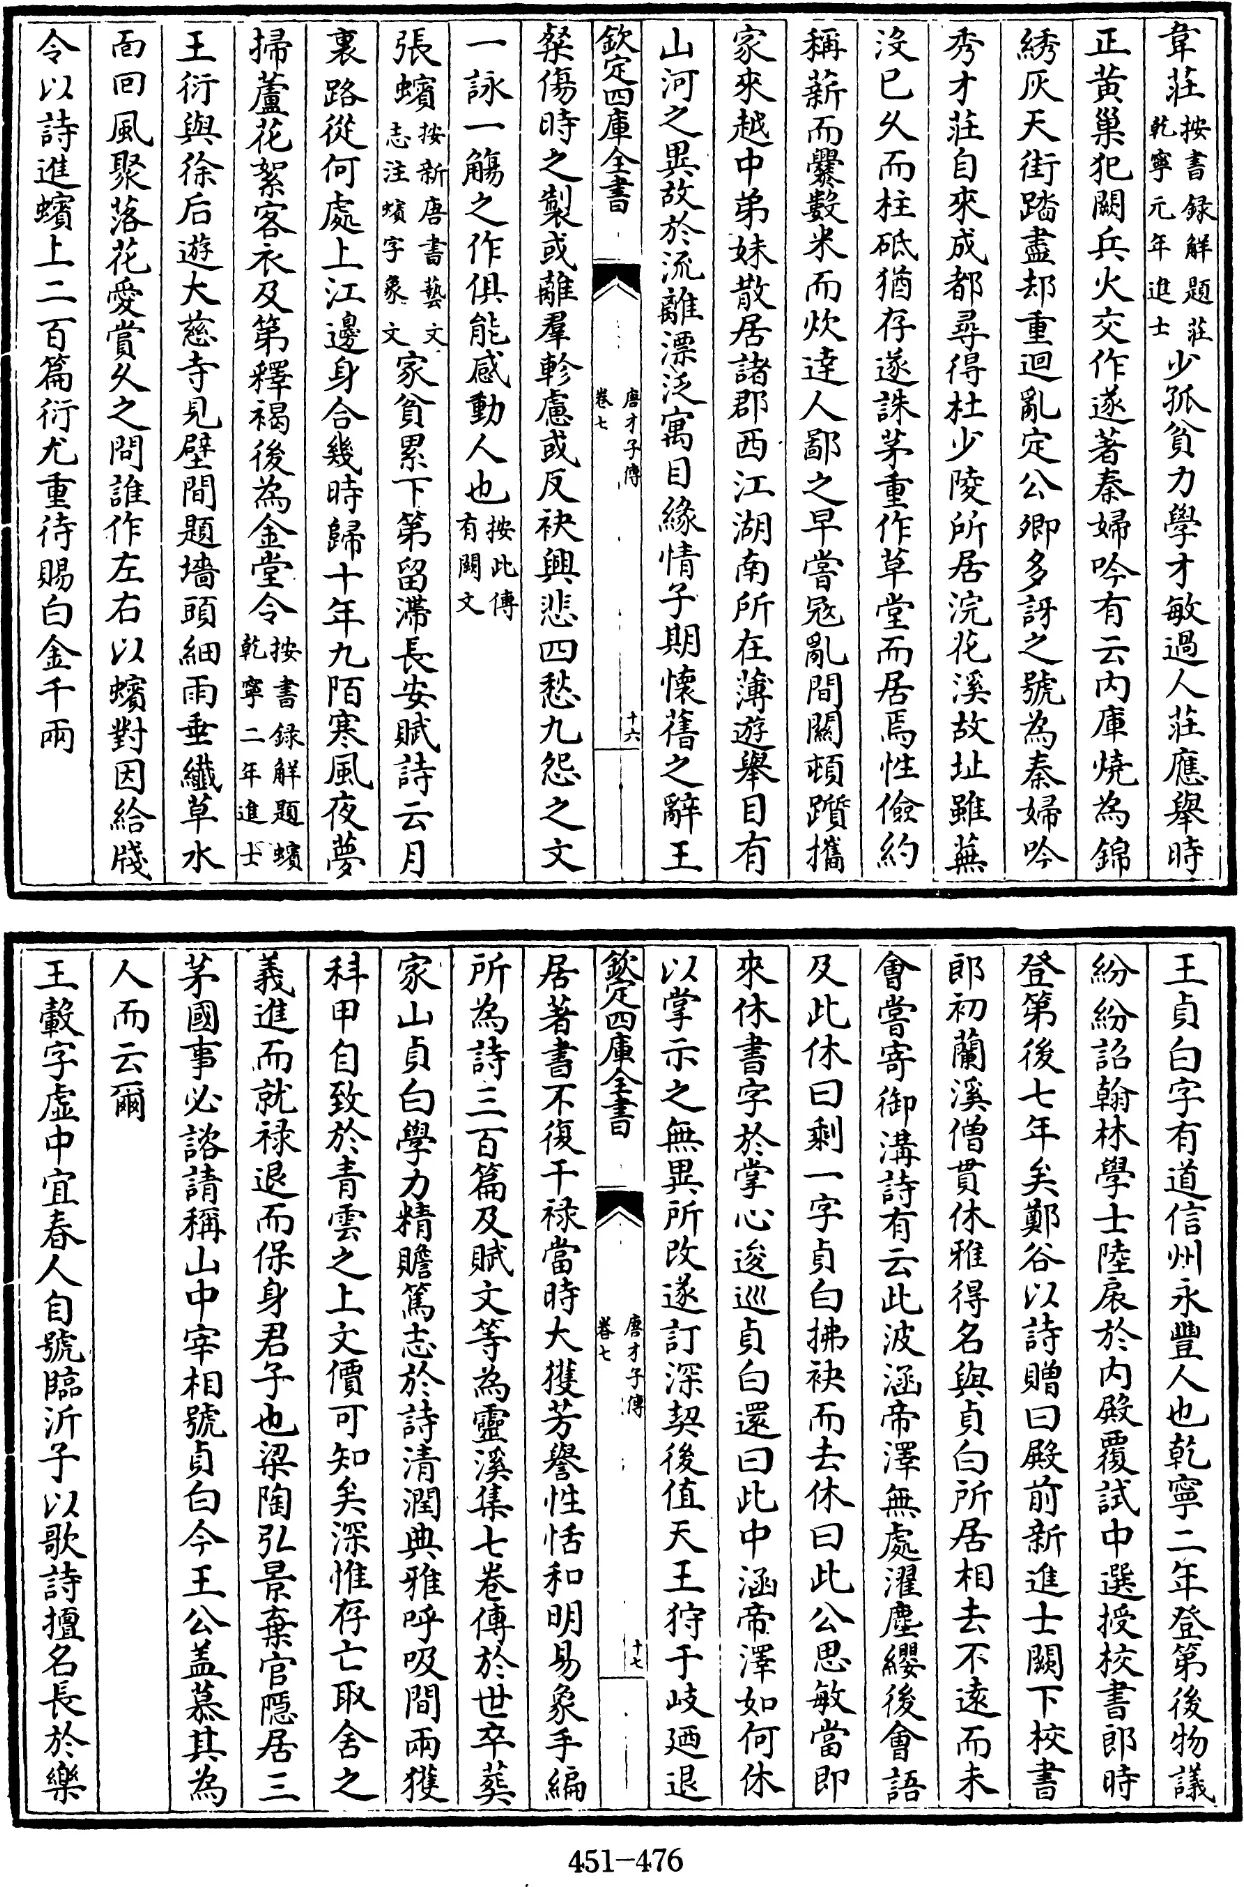 韋莊按書録解題莊乾寧元年進士少孤貧力學才敏過人莊應舉時
正黃巢犯闕兵火交作遂著秦婦吟有云内庫燒為錦
綉灰天街踏盡却重廻亂定公卿多訝之號為秦婦吟
秀才莊自來成都尋得杜少陵所居浣花溪故址雖蕪
沒已乆而柱砥猶存遂誅茅重作草堂而居焉性儉約
稱薪而爨數米而炊達人鄙之早嘗冦亂間關頓躓攜
家來越中弟妹散居諸郡西江湖南所在薄遊舉目有
山河之異故於流離漂泛寓目緣情子期懷舊之辭王
欽定四庫全書
唐才子傳
卷七
十六
粲傷時之製或離羣軫慮或反袂興悲四愁九怨之文
一詠一觴之作俱能感動人也按此傳有闕文
張蠙按新唐書藝文志注蠙字象文家貧累下第留滯長安賦詩云月
裏路從何處上江邊身合幾時歸十年九陌寒風夜夢
掃蘆花絮客衣及第釋褐後為金堂令按書録解題蠙乾寧二年進士
王衍與徐后遊大慈寺見壁間題墻頭細雨垂纎草水
面回風聚落花愛賞乆之問誰作左右以蠙對因給牋
令以詩進蠙上二百篇衍尤重待賜白金千兩
王貞白字有道信州永豐人也乾寧二年登第後物議
紛紛詔翰林學士陸扆於内殿覆試中選授校書郎時
登第後七年矣鄭谷以詩贈曰殿前新進士闕下校書
郎初蘭溪僧貫休雅得名與貞白所居相去不遠而未
會嘗寄御溝詩有云此波涵帝澤無處濯塵纓後會語
及此休曰剩一字貞白拂袂而去休曰此公思敏當即
來休書字於掌心逡巡貞白還曰此中涵帝澤如何休
以掌示之無異所改遂訂深契後值天王狩于岐廼退
欽定四庫全書
唐才子傳
卷七
十七
居著書不復干祿當時大獲芳譽性恬和明易象手編
所為詩三百篇及賦文等為靈溪集七卷傳於世卒葬
家山貞白學力精贍篤志於詩清潤典雅呼吸間兩獲
科甲自致於青雲之上文價可知矣深惟存亡取舍之
義進而就禄退而保身君子也梁陶弘景棄官隱居三
茅國事必諮請稱山中宰相號貞白今王公盖慕其為
人而云爾
王轂字虛中宜春人自號臨沂子以歌詩擅名長於樂
451-476